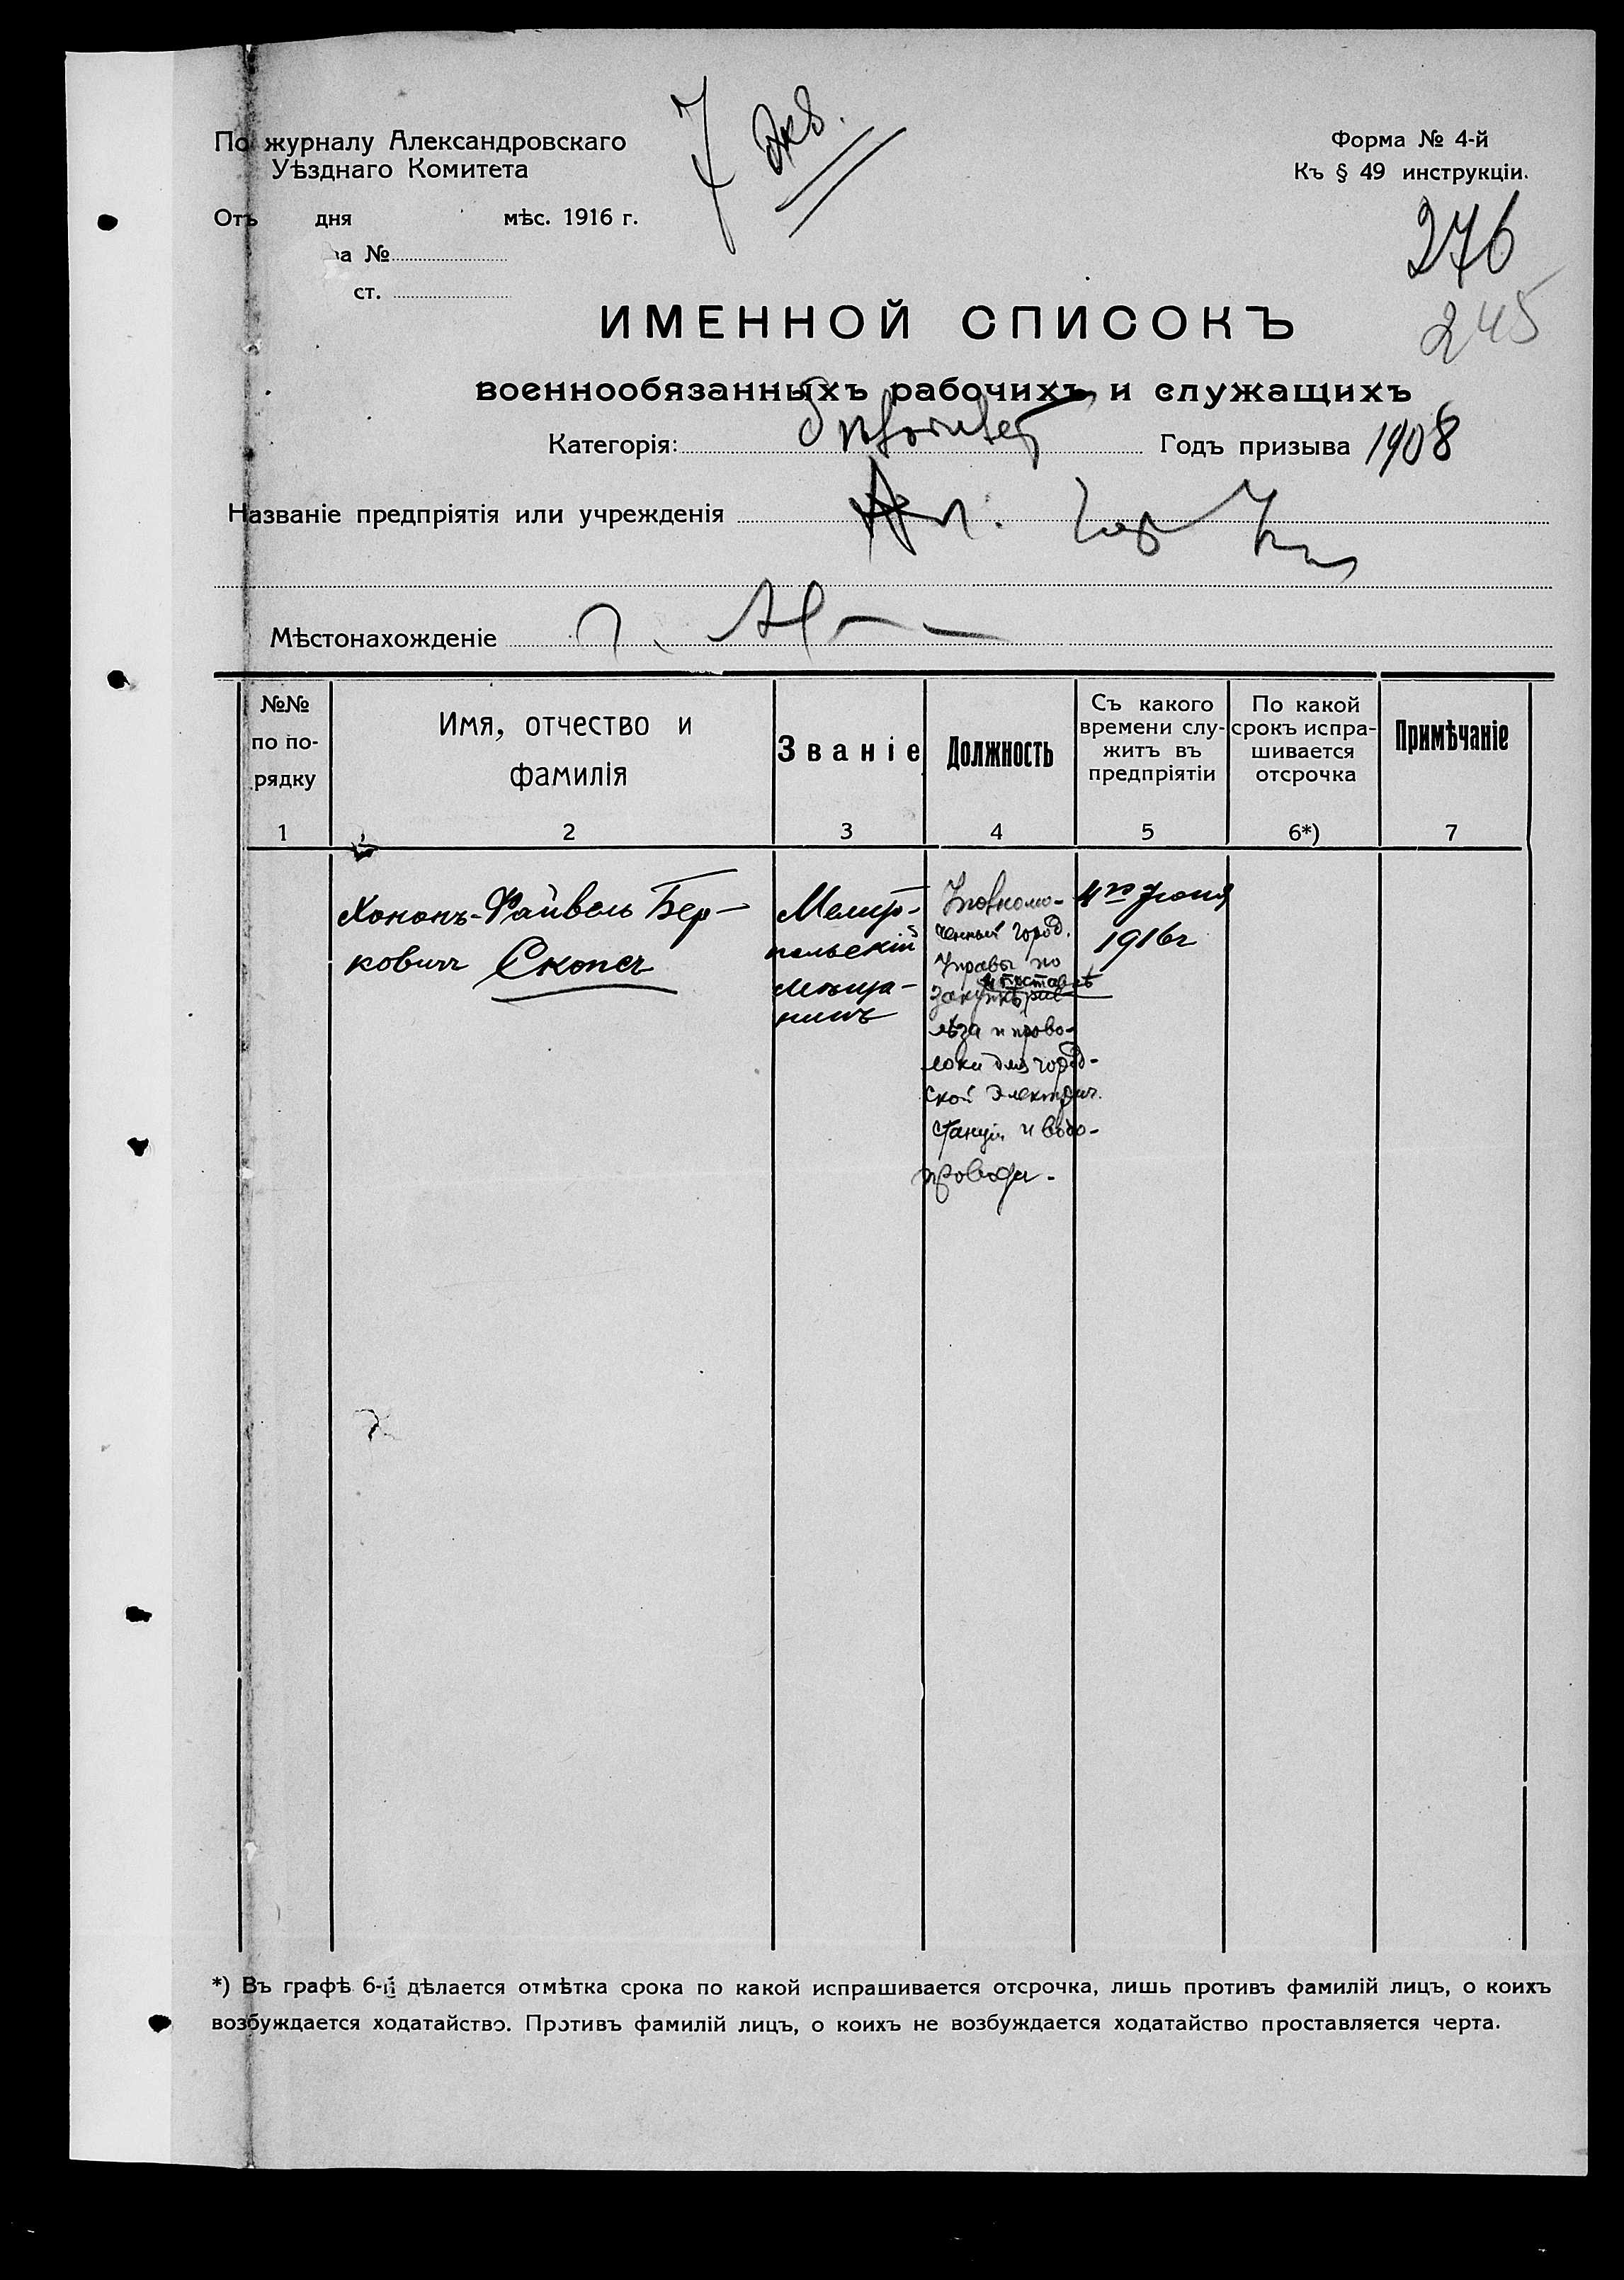 По журналу Александровскаго
Уѣзднаго Комитета
Отъ дня мѣс. 1916 г.
за №
ст.
7 экз.
Форма № 4-й
Къ § 49 инструкціи.
276
245
ИМЕННОЙ СПИСОКЪ
военнообязанныхъ рабочихъ и служащихъ
Категорія: Годъ призыва 1908
Названіе предпріятія или учрежденія
Мѣстонахожденіе г.
№№ по по-рядку
Имя, отчество и фамилія
Званіе
Должность
Съ какого времени слу-житъ въ предпріятіи
По какой срокъ испра-шивается отсрочка
Примѣчаніе
1 2 3 4 5 6*) 7
Хононъ-Файвель Бер-
ковичъ Скопецъ
Мелито-
польскій
мѣща-
нинъ
Уполномо-
ченный город.
Управы по
и поставкѣ
закупкѣ
лѣза и прово-
локи для город-
ской электрич.
станціи и водо-
провода.
4го Іюня
1916г
*) Въ графѣ 6-й дѣлается отмѣтка срока по какой испрашивается отсрочка, лишь противъ фамилій лицъ, о коихъ
возбуждается ходатайство. Противъ фамилій лицъ, о коихъ не возбуждается ходатайство проставляется черта.